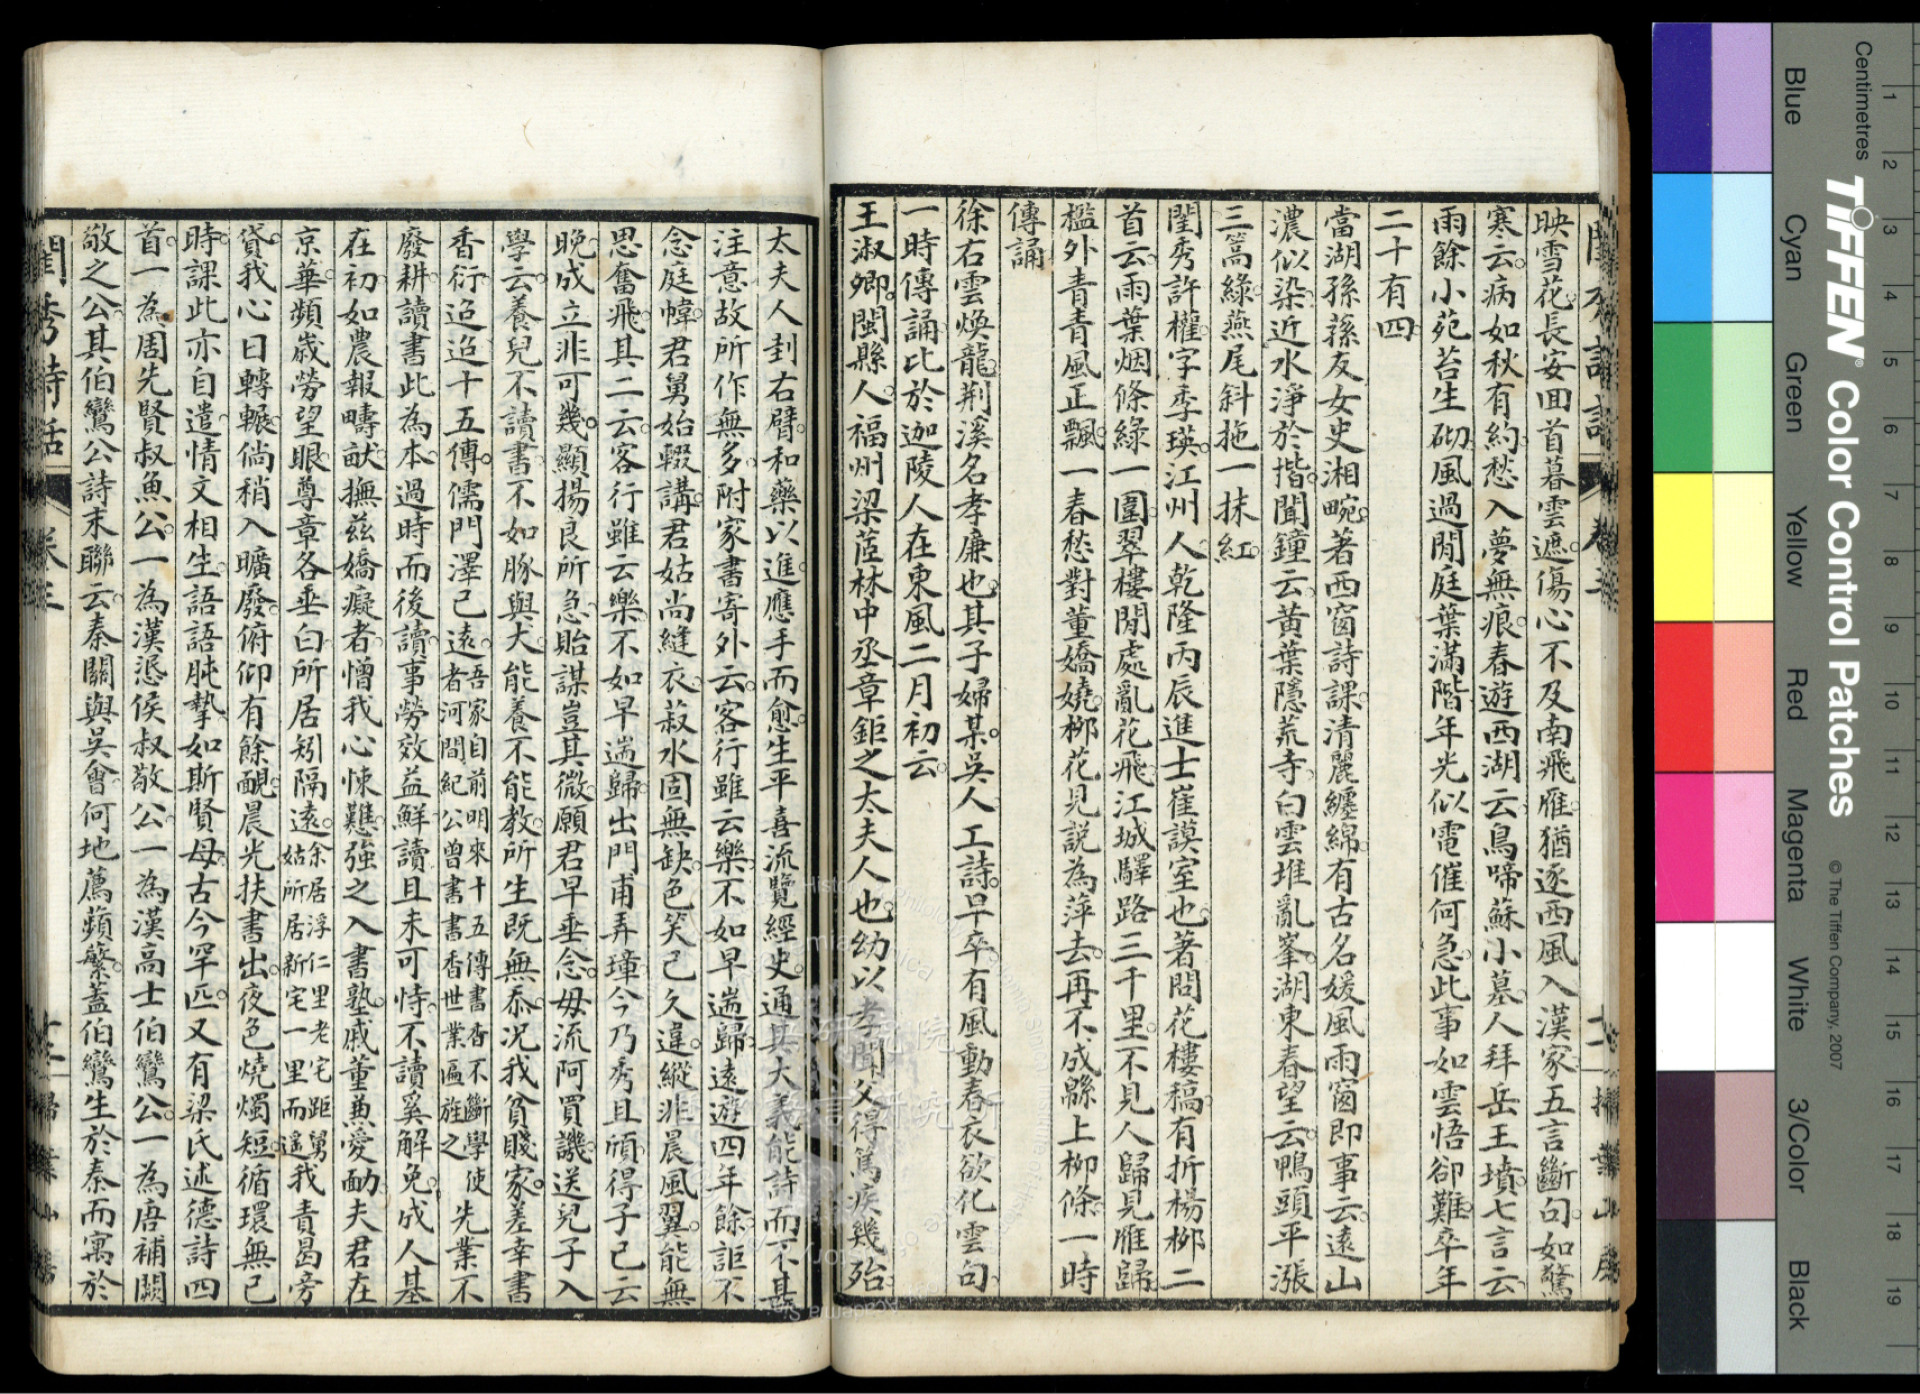 映雪花長安回首暮雲遮傷心不及南飛雁猶逐西風入漢家五言斷句如驚
寒云病如秋有約愁入夢無痕春遊西湖云鳥啼蘇小墓人拜岳王墳七言云
雨餘小苑苔生砌風過閒庭葉滿階年光似電催何急此事如雲悟卻難卒年
二十有四
當湖孫蓀友女史湘畹著西窗詩課清麗纏綿有古名媛風雨窗即事云遠山
濃似染近水淨於揩聞鐘云黃葉隱荒寺白雲堆亂峯湖東春望云鴨頭平漲
三篙綠燕尾斜拖一抹紅
閨秀許權字季瑛江州人乾隆丙辰進士崔謨室也著問花樓稿有折楊柳二
首云雨葉烟條綠一圍翠樓閒處亂花飛江城驛路三千里不見人歸見雁歸
檻外青青風正飄一春愁對董嬌嬈柳花見說為萍去再不成緜上柳條一時
傳誦
徐右雲煥龍荆溪名孝廉也其子婦某吳人工詩早卒有風動春衣欲化雲句
一時傳誦比於迦陵人在東風二月初云
王淑卿閩縣人福州梁茝林中丞章鉅之太夫人也幼以孝聞父得篤疾幾殆
太夫人封右臂和藥以進應手而愈生平喜流覽經史通其大義能詩而不甚
注意故所作無多附家書寄外云客行雖云樂不如早遄歸遠遊四年餘詎不
念庭幃君舅始輟講君姑尚縫衣菽水固無缺色笑已久違縱非晨風翼能無
思奮飛其二云客行雖云樂不如早遄歸出門甫弄璋今乃秀且頎得子已云
晚成立非可幾顯揚良所急貽謀豈其微願君早垂念毋流阿買譏送兒子入
學云養兒不讀書不如豚與犬能養不能教所生既無忝況我貧賤家差幸書
香衍迢迢十五傳儒門澤已遠吾家自前明來十五傳書香不斷學使者河間紀公曾書書香世業匾旌之先業不
廢耕讀書此為本過時而後讀事勞效益鮮讀且未可恃不讀奚解免成人基
在初如農報疇畎撫茲嬌癡者憎我心悚難強之入書塾戚董兼愛勔夫君在
京華頻歲勞望眼尊章各垂白所居矧隔遠余居浮仁里老宅距舅姑所居新宅一里而遙我青曷旁
貸我心日轉輾倘稍入曠廢俯仰有餘靦晨光扶書出夜色燒燭短循環無已
時課此亦自遣情文相生語語肫摯如斯賢母古今罕匹又有梁氏述德詩四
首一為周先賢叔魚公一為漢愻侯叔敬公一為漢高士伯鸞公一為唐補闕
敬之公其伯鸞公詩末聯云秦關與吳會何地薦蘋蘩蓋伯鸞生於秦而寓於
閨秀詩話
卷三
掃葉山房